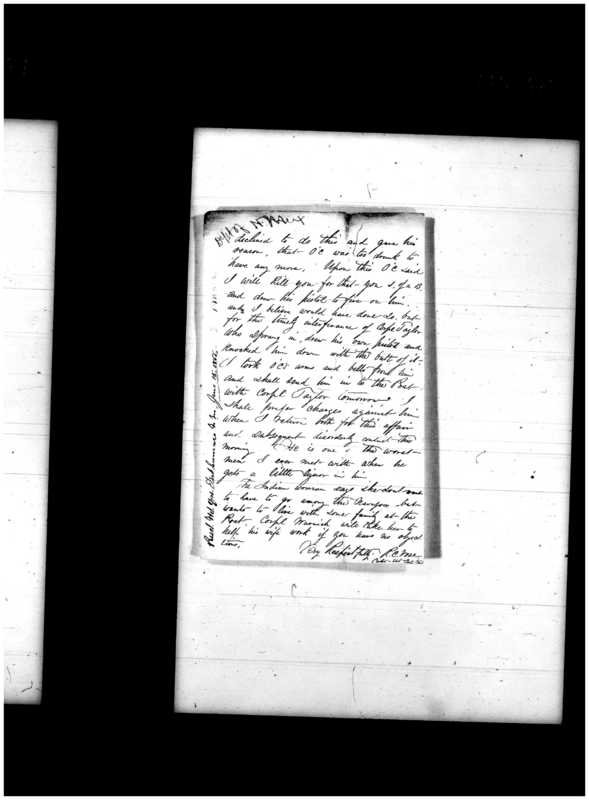 declined to do this and gave his
reason, that OC was too drunk to
have any more. Upon this OC said
I will kill you for that you s. of a B.
and drew his pistol to fire on him
and I believe would have done so, but
for the timely interference of Corpl Taylor
who sprung in, drew his own pistol and
knocked him down with the butt of it.
I took OC's arms and belts from him
and shall send him in to the Post
with Corpl Taylor tomorrow. I
shall prefer charges against him
when I return both for this affair
and subsequent disorderly conduct this
morning. He is one of the worst
men I ever met with when he
gets a little liquor in him.
The Indian woman says she dont want
to have to go among the Navajoes but
wants to live with some family at the
Post. Corpl will take her to
help his wife work if you have no objec
tions.
Very Respectfully